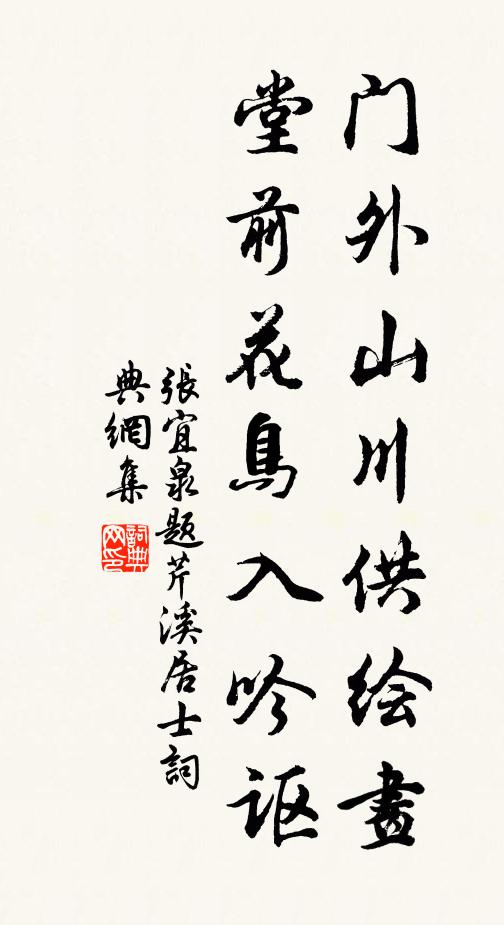 门外山川供绘畫
堂前花鳥入吟讴
張宜泉題芹溪居士詞
典網集
詞典网印